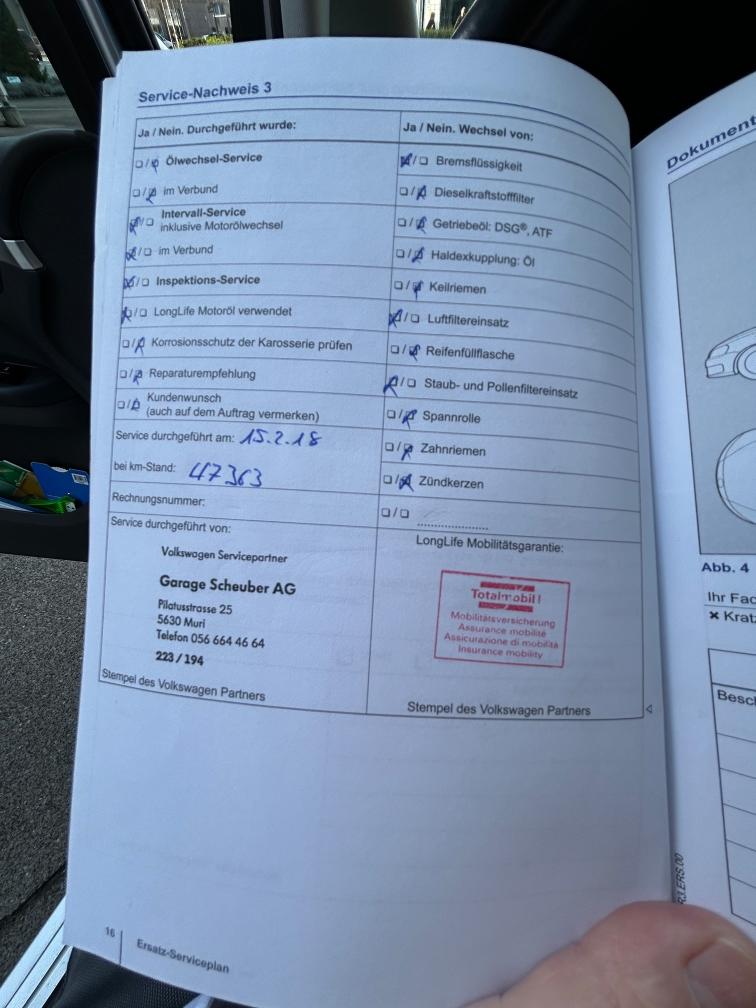 Service-Nachweis 3
Ja / Nein. Durchgeführt wurde:
Ölwechsel-Service
im Verbund
Intervall-Service
inklusive Motorölwechsel
im Verbund
Inspektions-Service
LongLife Motoröl verwendet
Korrosionsschutz der Karosserie prüfen
Reparaturempfehlung
Kundenwunsch
(auch auf dem Auftrag vermerken)
Service durchgeführt am: 15.2.18
bei km-Stand: 47363
Rechnungsnummer:
Service durchgeführt von:
Volkswagen Servicepartner
Garage Scheuber AG
Pilatusstrasse 25
5630 Muri
Telefon 056 664 46 64
223 / 194
Stempel des Volkswagen Partners
Ja / Nein. Wechsel von:
Bremsflüssigkeit
Dieselkraftstofffilter
Getriebeöl: DSG®, ATF
Haldexkupplung: Öl
Keilriemen
Luftfiltereinsatz
Reifenfüllflasche
Staub- und Pollenfiltereinsatz
Spannrolle
Zahnriemen
Zündkerzen
LongLife Mobilitätsgarantie:
Totalmobil!
Mobilitätsversicherung
Assurance mobilité
Assicurazione di mobilità
Insurance mobility
Stempel des Volkswagen Partners
16
Ersatz-Serviceplan
Dokument
Abb. 4
Ihr Fac
× Krat
Besch